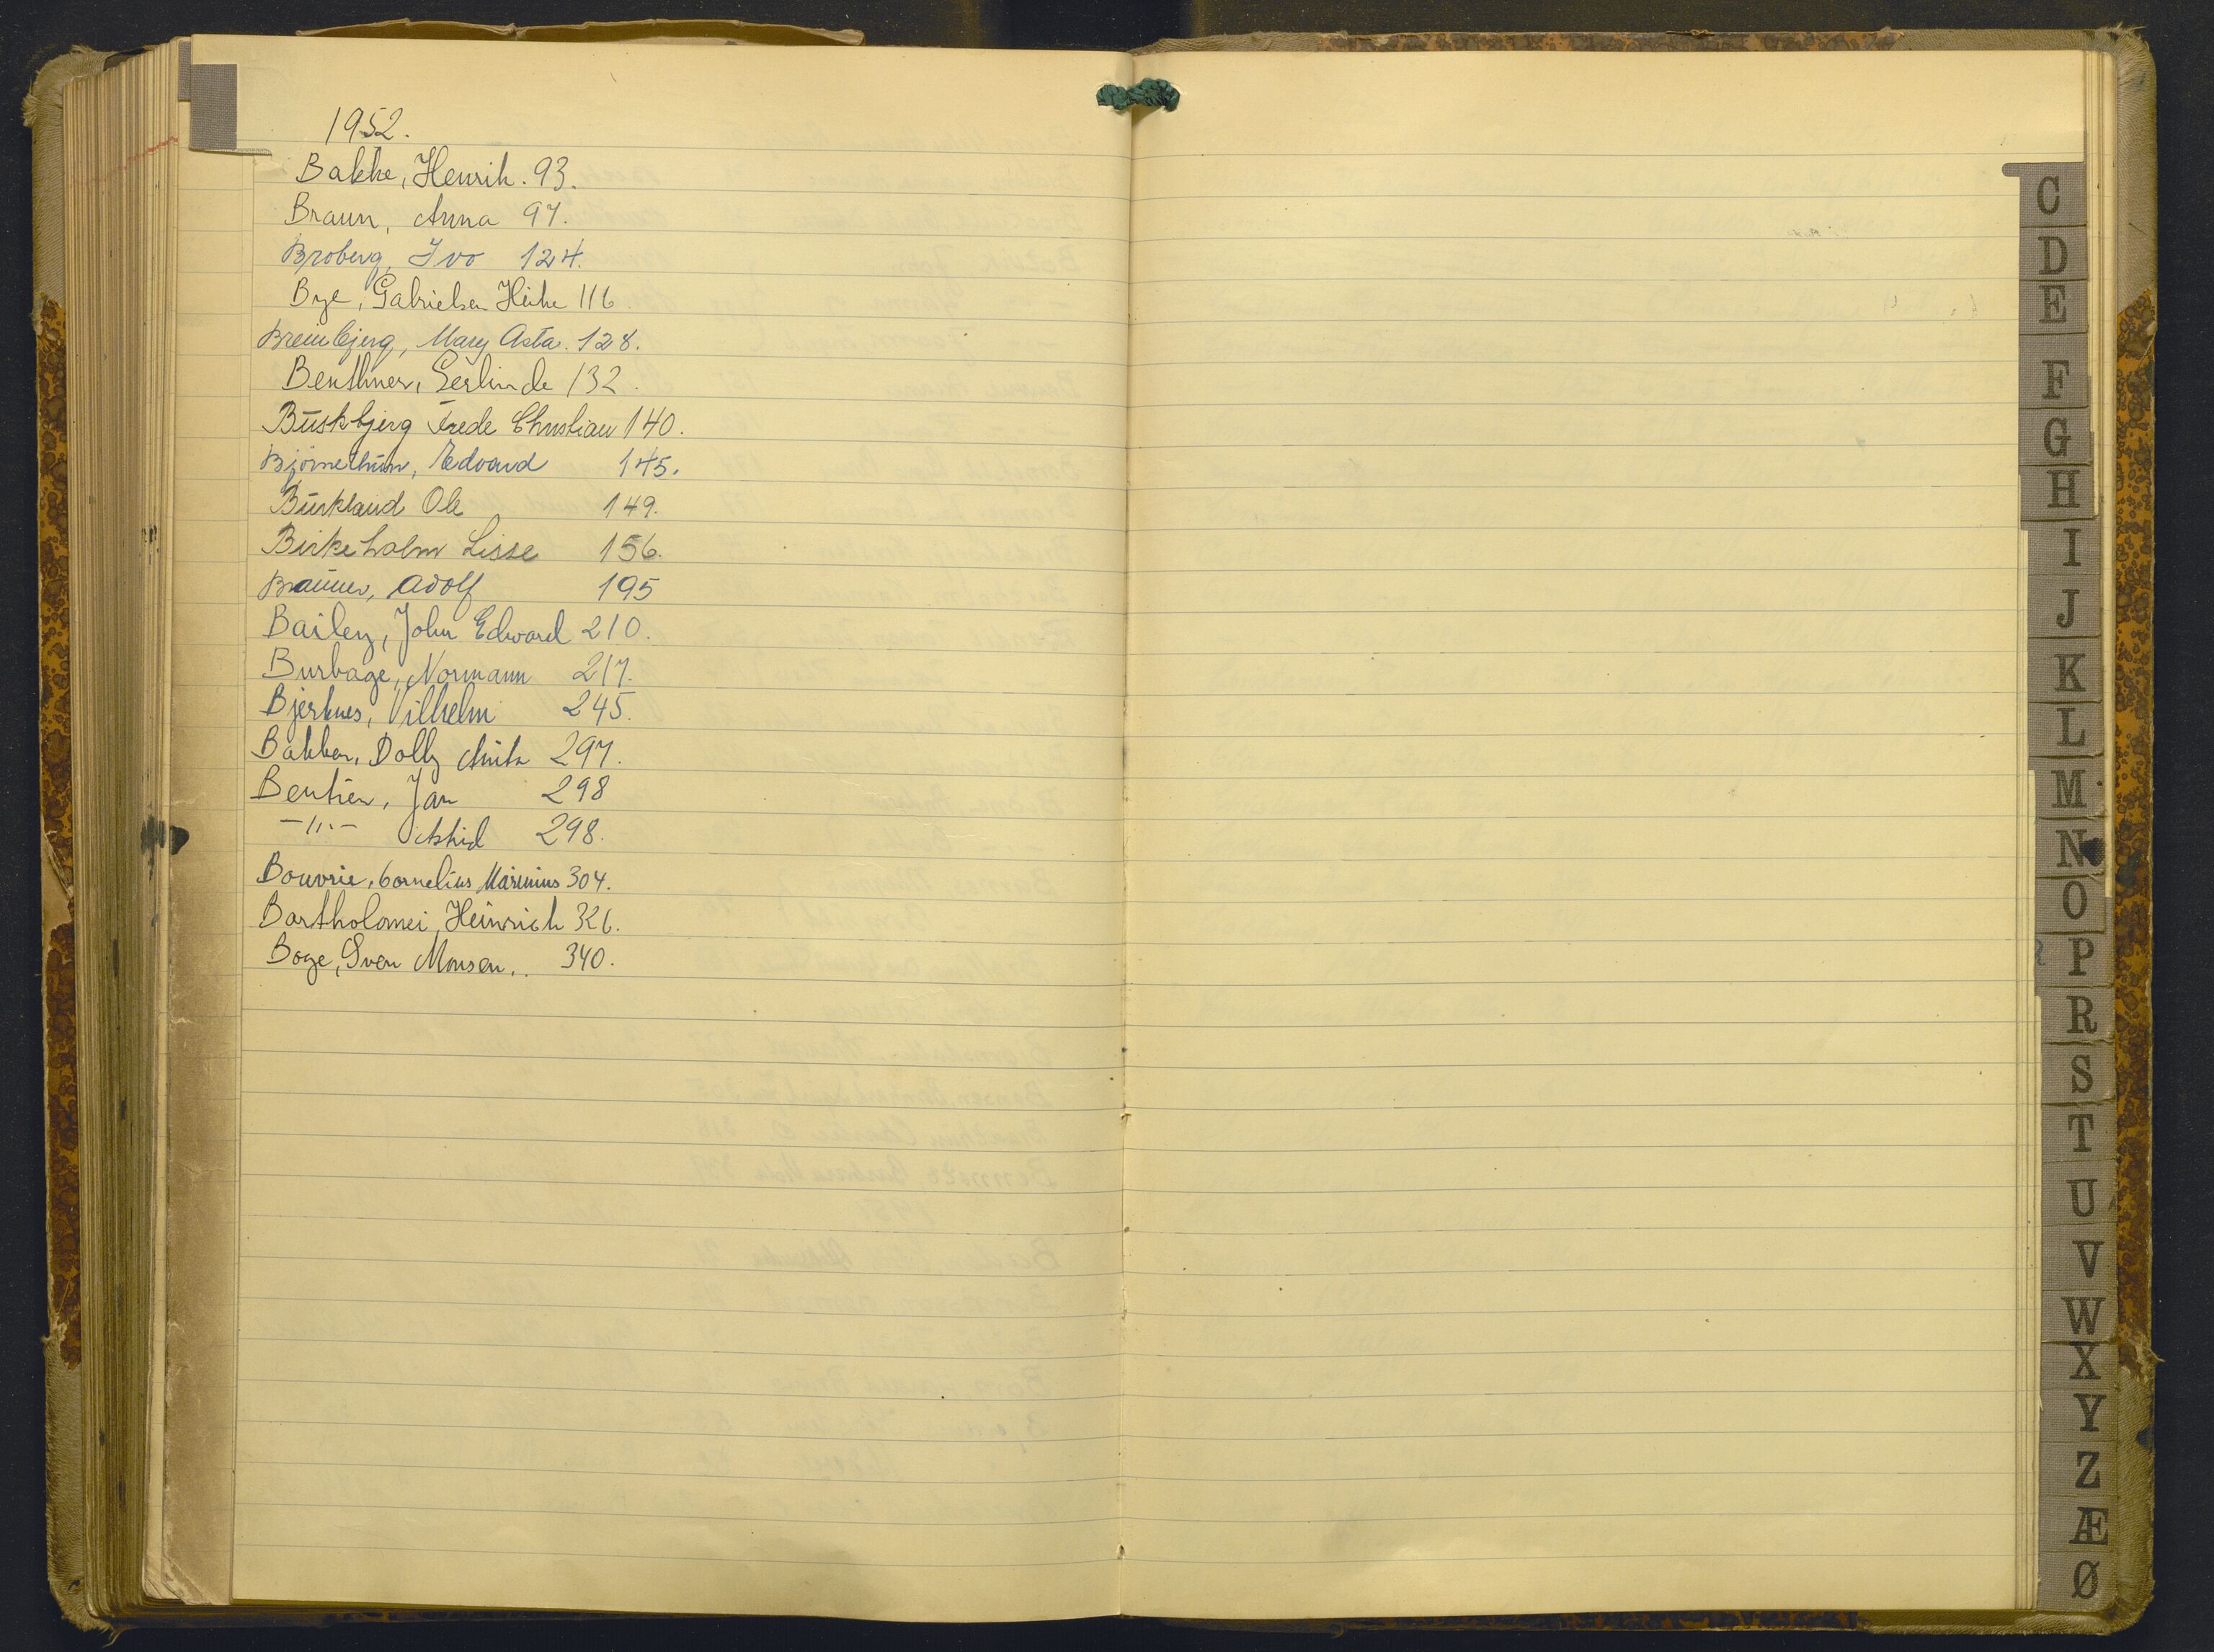 1952.
Bakke, Henrik. 93.
Braun, Anna 97.
Broberg, Ivo 124.
Bye, Gabrielsen Heike 116.
Breinbjerg, Mary Asta. 128.
Benthner, Gerlinde 132.
Buskbjerg Frede Christian 140.
Björnethun, Edvard 145.
Burkland Ole 149.
Birkeholm Lisse 156.
Brauner, Adolf 195
Bailey, John Edward 210.
Burbage, Normann 217.
Bjerknes, Vilhelm 245.
Bakker, Dolly Anita 297.
Bentien, Jan 298
-"- Astrid 298.
Bouvrie, Cornelius Marinius 304.
Bartholomei, Heinrich 326.
Boge, Sven Monsen.. 340.
C
D
E
F
G
H
I
J
K
L
M
N
O
P
R
S
T
U
V
W
X
Y
Z
Æ
Ø